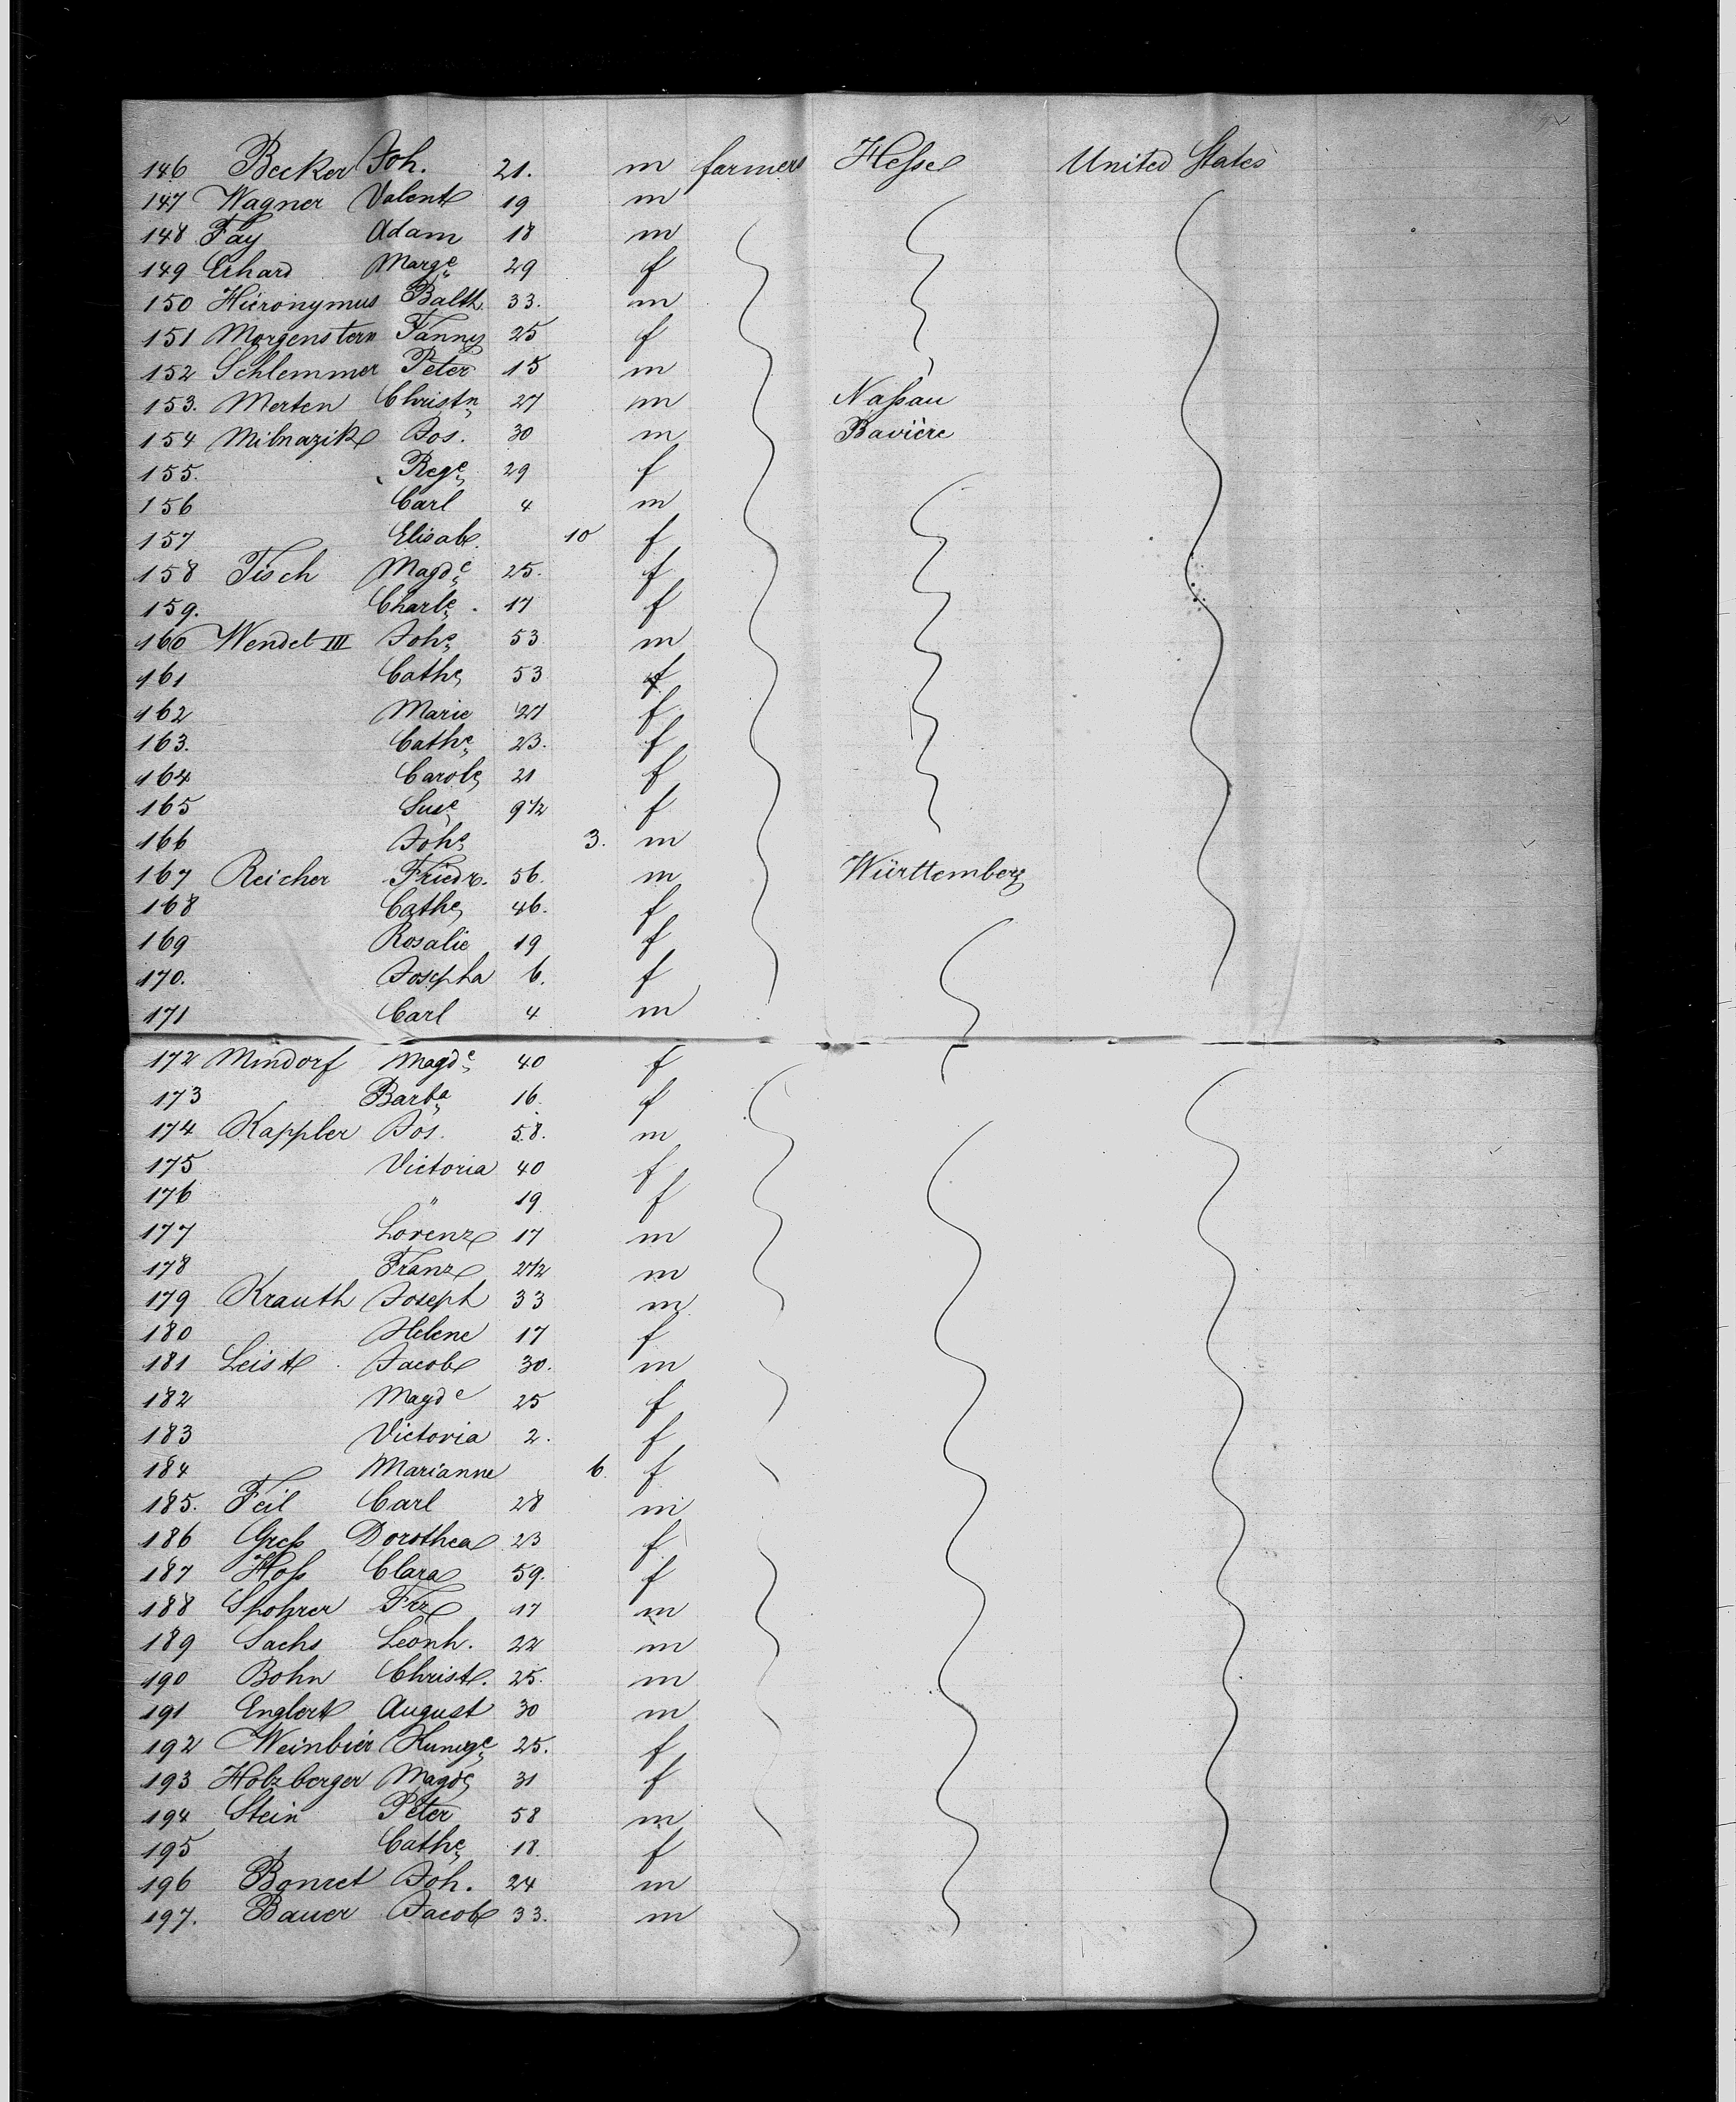 146 Becker Joh. 21. m farmers Hesse United States
147 Wagner Valent 19 m
148 Fay Adam 18 m
149 Erhard Marge 29 f
150 Hieronymus Balth. 33. m
151 Morgenstern Fanny 25 f
152 Schlemmer Peter 15 m
153. Merten Christn 27 m Naßau
154 Milnazik Jos. 30 m Bavière
155. Rege 29 f
156 Carl 4 m
157 Elisab. 10 f
158 Tisch Magde 25. f
159. Charle. 17 f
160 Wendel III Johs 53 m
161 Cathe 53 f
162 Marie 27 f
163. Cathe 23. f
164 Carole 21 f
165 Suse 9 1/2 f
166 Johs 3. m
167 Reicher Friedr. 56. m Württemberg
168 Cathe 46. f
169 Rosalie 19 f
170. Josepha 6. f
171 Carl 4 m
172 Mindorf Magde 40 f
173 Barba 16. f
174 Kappler Jos. 58. m
175 Victoria 40 f
176 " 19 f
177 Lorenz 17 m
178 Franz 2 1/2 m
179 Krauth Joseph 33 m
180 Helene 17 f
181 Leist Jacob 30. m
182 Magde 25 f
183 Victoria 2. f
184 Marianne 6. f
185. Feil Carl 28 m
186 Greß Dorothea 23 f
187 Hoß Clara 59. f
188 Spohrer Frz 17 m
189 Sachs Leonh. 22 m
190 Bohn Christ. 25. m
191 Englert August 30 m
192 Weinbier Kunige 25. f
193 Holzberger Magde 31 f
194 Stein Peter 58 m
195 Cathe 18. f
196 Bonret Joh. 24 m
197. Bauer Jacob 33. m